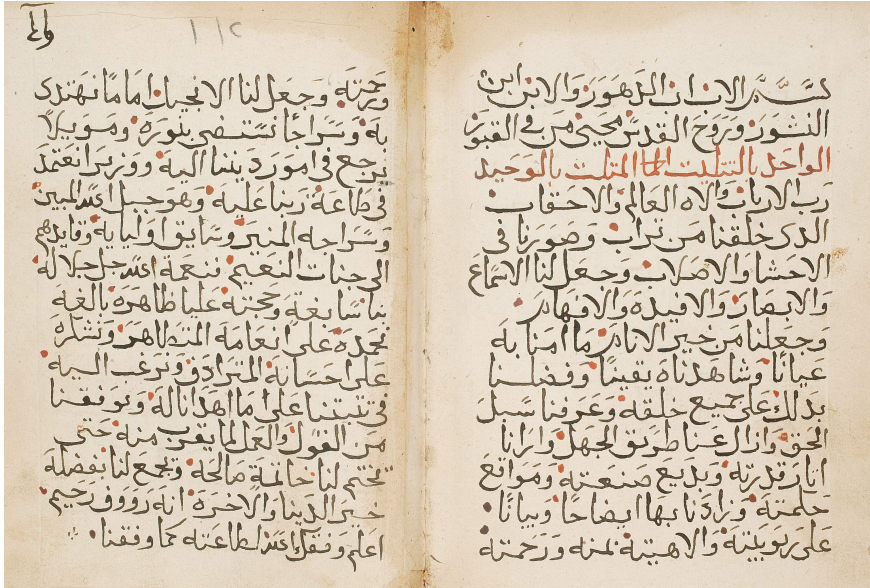 بسم الاب ابن الدهور والابن ابن
النشور وروح القدس محيى من في القبور
الواحد بالتثليث الها المثلث بالتوحيد
رب الارباب والاه العالم والاحقاب
الدى خلقنا من تراب وصورنا في
الاحشا والاصلاب وجعل لنا الاسماع
والابصار والافيده والافهام
وجعلنا من خير الانام ما امنا به
عيانا وشاهدناه يقينا وفضلنا
بدلك على جميع خلقه وعرفنا سبل
الحق وازال عنا طريق الجهل وارانا
اثار قدرته وبديع صنعته ومواقع
حكمته وزادنا بها ايضاحا وبيانا
على ربوبيته والاهيته بمنه ورحمته
ورحمته وجعل لنا الانجيل اماما نهتدى
به وسراجا نستضى بنوره ومويلا
نرجع في امور ديننا اليه ووزيرا نعتمد
في طاعة ربنا عليه وهو حبل الله المبين
وسراجه المنير وسايق اوليايه وقايدهم
الى جنات النعيم فنعمة الله جل جلاله
بنا سابغه وحجته علينا ظاهره بالغه
نحمده على انعامه المتظاهر ونشكره
على احسانه المترادف ونرغب اليه
في تثبيتنا على ما اهدانا له وتوفقنا
من القول والعمل لما يقرب منه حتى
تختم لنا خاتمة صالحه ويجمع لنا بفضله
خير الدينا والاخره انه رووف رحيم
اعلم وفقك الله لطاعته كما وفقنا